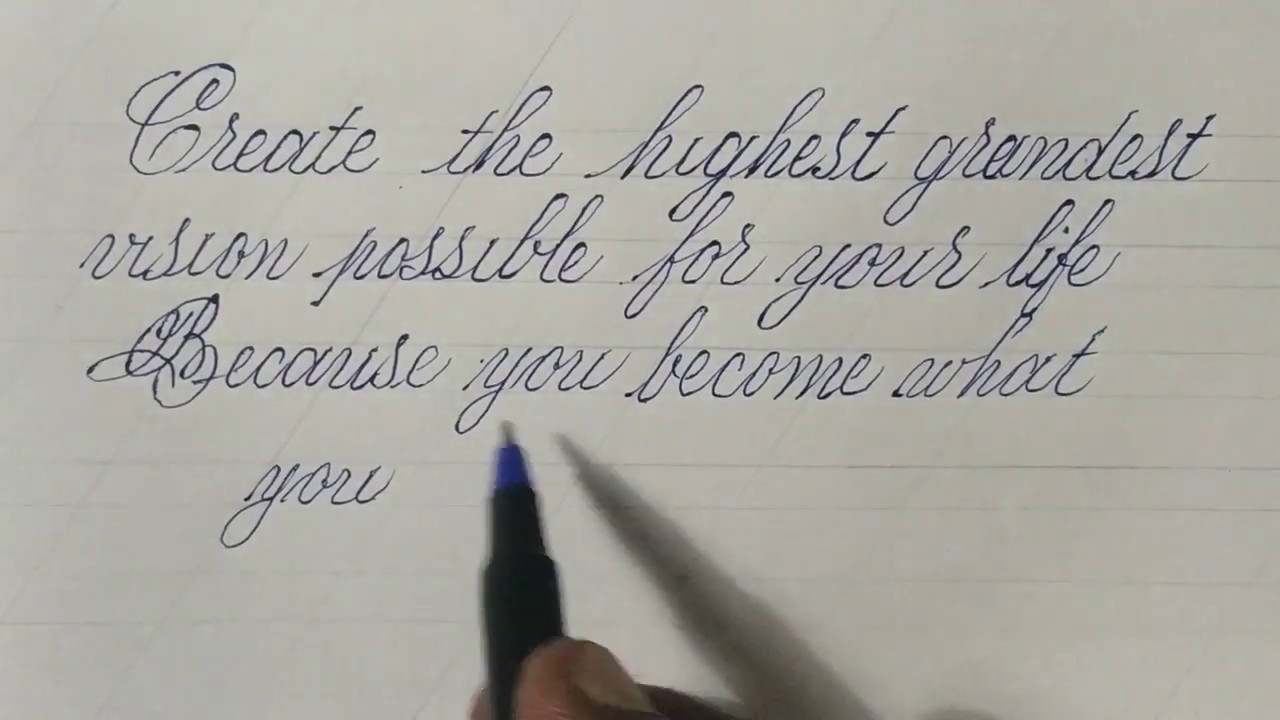 Create the highest grandest
vision possible for your life
Because you become what
you